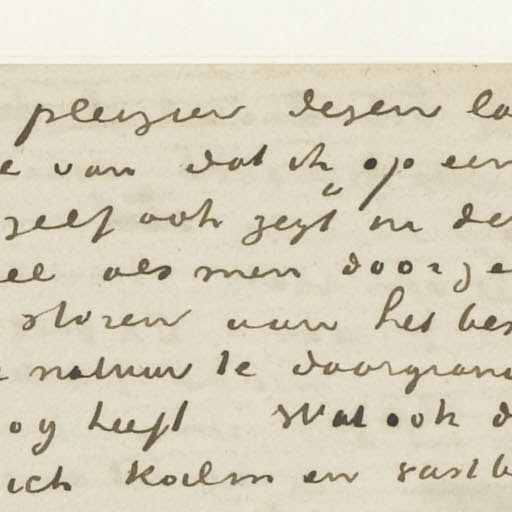 pleizier dezen la
e van dat ik op een
zelf ook zegt" in de
eel als men doorge
storen aan het bes
natuur te doorgron
oog heeft Wat ook d
ich kalm en vast b